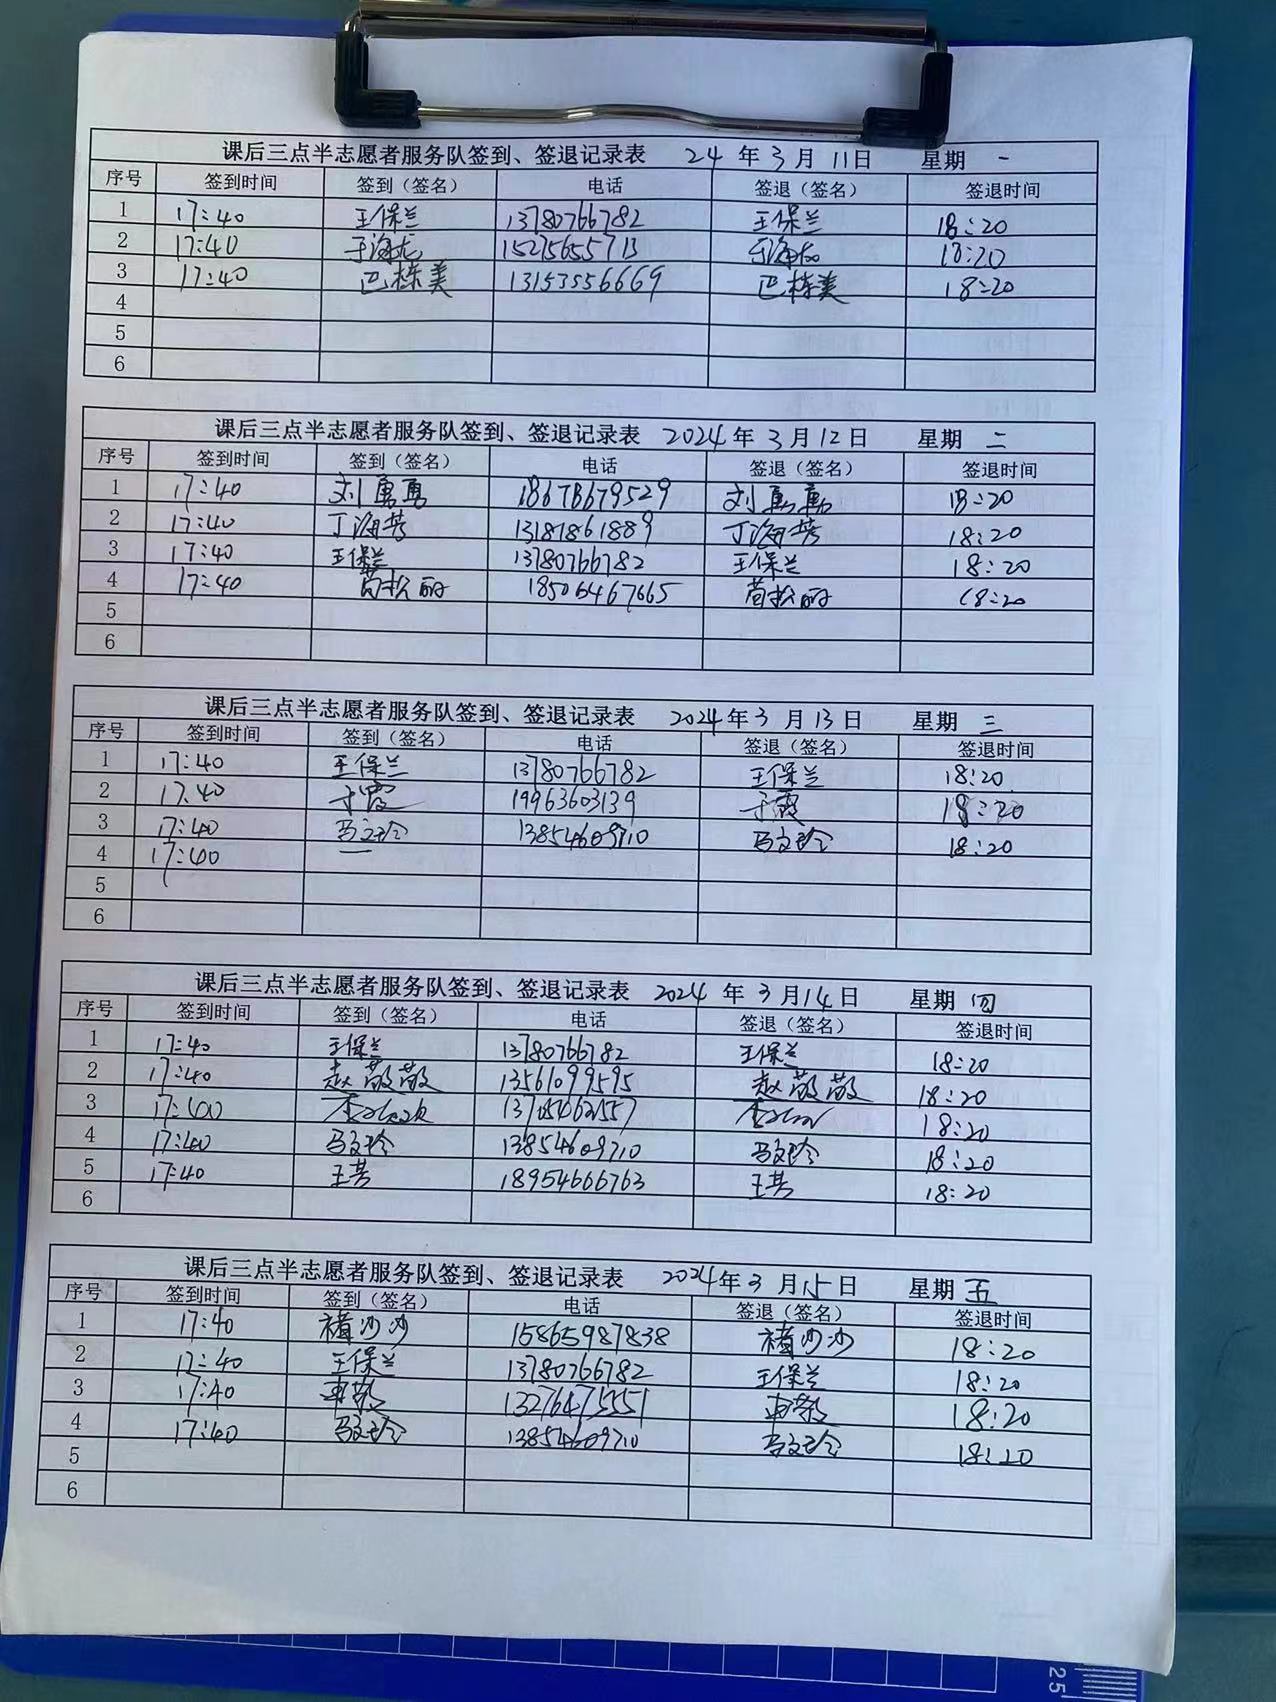 课后三点半志愿者服务队签到、签退记录表 24 年 3 月 11 日 星期 一
序号 签到时间 签到（签名） 电话 签退（签名） 签退时间
1 17:40 王保兰 13780766782 王保兰 18:20
2 17:40 于海龙 15275655713 于海龙 18:20
3 17:40 巴栋美 13153556669 巴栋美 18:20
4
5
6
课后三点半志愿者服务队签到、签退记录表 2024 年 3 月 12 日 星期 二
序号 签到时间 签到（签名） 电话 签退（签名） 签退时间
1 17:40 刘勇勇 18678679529 刘勇勇 18:20
2 17:40 丁海芳 13181861889 丁海芳 18:20
3 17:40 王保兰 13780766782 王保兰 18:20
4 17:40 苟松丽 18506467665 苟松丽 18:20
5
6
课后三点半志愿者服务队签到、签退记录表 2024 年 3 月 13 日 星期 三
序号 签到时间 签到（签名） 电话 签退（签名） 签退时间
1 17:40 王保兰 13780766782 王保兰 18:20
2 17:40 于霞 19963603139 于霞 18:20
3 17:40 马文玲 13854609710 马文玲 18:20
4 17:40
5
6
课后三点半志愿者服务队签到、签退记录表 2024 年 3 月 14 日 星期 四
序号 签到时间 签到（签名） 电话 签退（签名） 签退时间
1 17:40 王保兰 13780766782 王保兰 18:20
2 17:40 赵敬敬 13561099595 赵敬敬 18:20
3 17:40 13705462557 18:20
4 17:40 马文玲 13854609710 马文玲 18:20
5 17:40 王芳 18954666763 王芳 18:20
6
课后三点半志愿者服务队签到、签退记录表 2024 年 3 月 15 日 星期 五
序号 签到时间 签到（签名） 电话 签退（签名） 签退时间
1 17:40 褚沙沙 15865987838 褚沙沙 18:20
2 17:40 王保兰 13780766782 王保兰 18:20
3 17:40 13276475551 18:20
4 17:40 马文玲 13854609710 马文玲 18:20
5
6
25